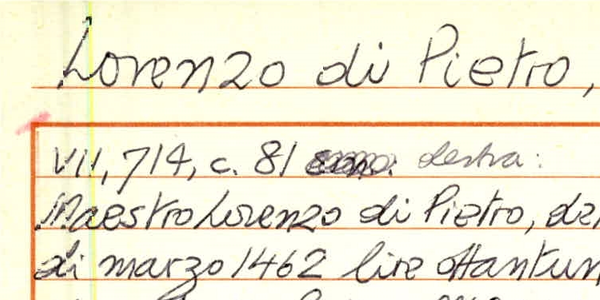 Lorenzo di Pietro,
VII, 714, c. 81 destra:
Maestro Lorenzo di Pietro,
di marzo 1462 lire